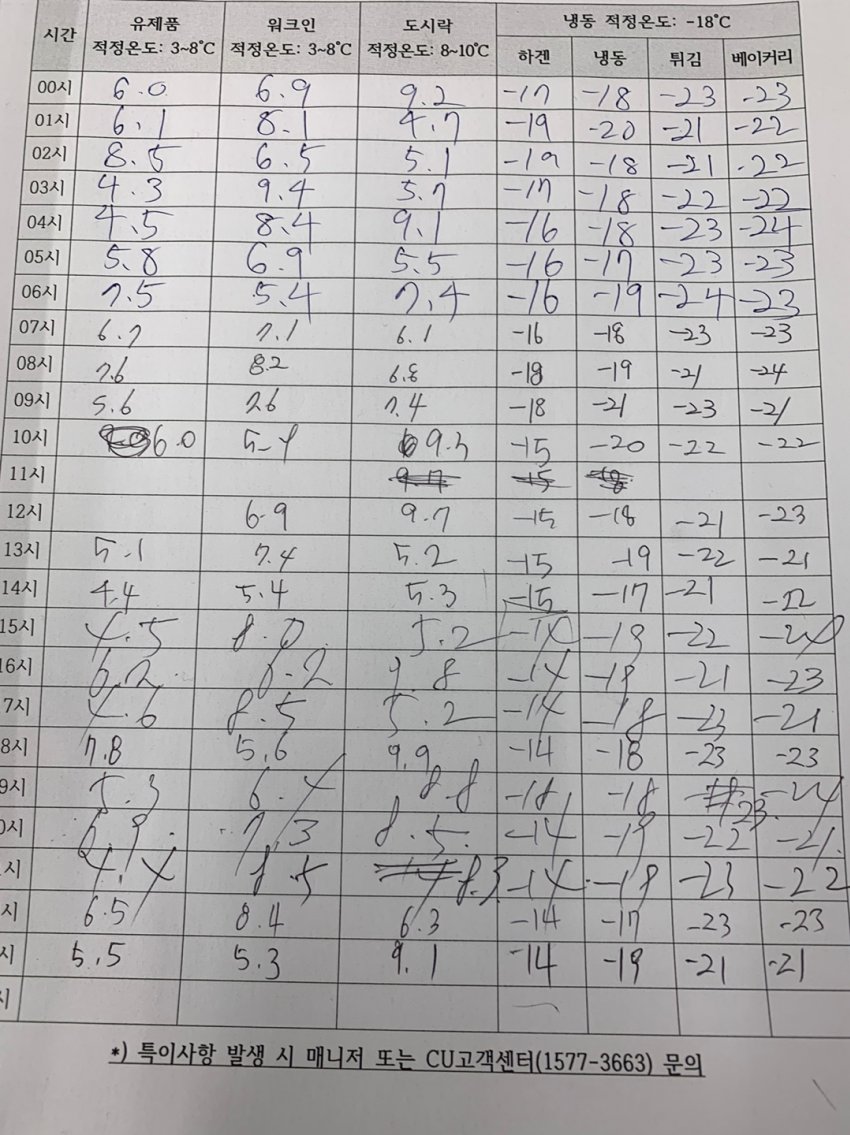 시간 유제품 적정온도: 3~8℃ 워크인 적정온도: 3~8℃ 도시락 적정온도: 8~10℃ 냉동 적정온도: -18℃
하겐 냉동 튀김 베이커리
00시 6.0 6.9 9.2 -17 -18 -23 -23
01시 6.1 8.1 4.7 -19 -20 -21 -22
02시 8.5 6.5 5.1 -19 -18 -21 -22
03시 4.3 9.4 5.7 -17 -18 -22 -22
04시 4.5 8.4 9.1 -16 -18 -23 -24
05시 5.8 6.9 5.5 -16 -17 -23 -23
06시 7.5 5.4 7.4 -16 -19 -24 -23
07시 6.7 7.1 6.1 -16 -18 -23 -23
08시 7.6 8.2 6.8 -18 -19 -21 -24
09시 5.6 7.6 7.4 -18 -21 -23 -21
10시 6.0 -15 -20 -22 -22
11시
12시 6.9 9.7 -15 -18 -21 -23
13시 5.1 7.4 5.2 -15 -19 -22 -21
14시 4.4 5.4 5.3 -15 -17 -21 -22
15시 4.5 8.0 5.2 -14 -19 -22 -24
16시 6.2 -14 -21 -23
7시 4.6 8.5 5.2 -14 -18 -23 -21
8시 7.8 5.6 9.9 -14 -18 -23 -23
9시 5.3 6.4 8.8 -18 -18 -23 -24
0시 6.9 7.3 8.5 -14 -19 -22 -21
시 4.4 8.5 8.3 -14 -19 -23 -22
시 6.5 8.4 6.3 -14 -17 -23 -23
시 5.5 5.3 9.1 -14 -19 -21 -21
시
*) 특이사항 발생 시 매니저 또는 CU고객센터(1577-3663) 문의